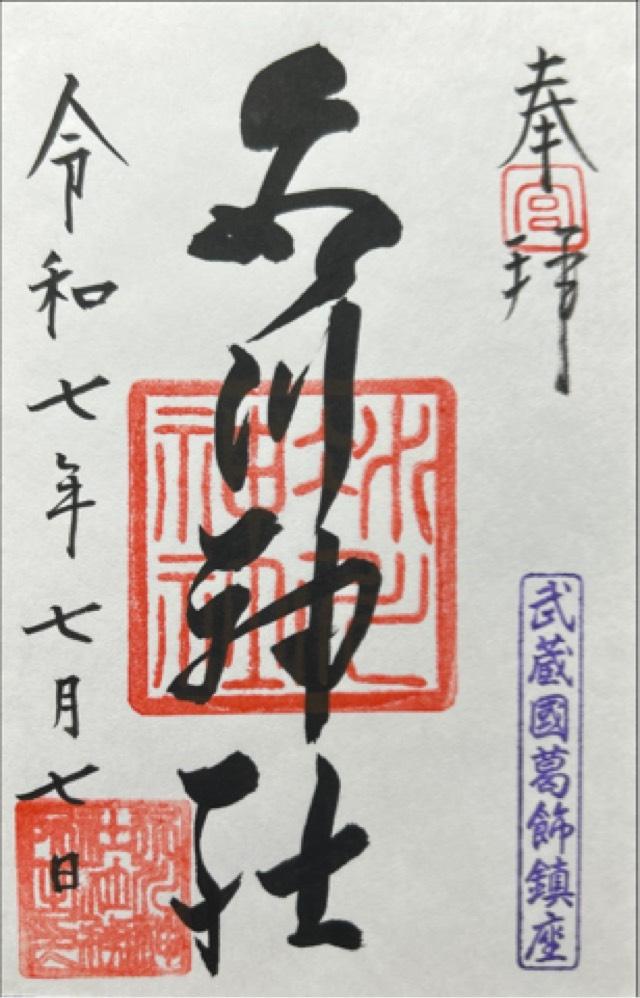 奉拝
宮
武蔵國葛飾鎮座
氷川神社
令和七年七月七日